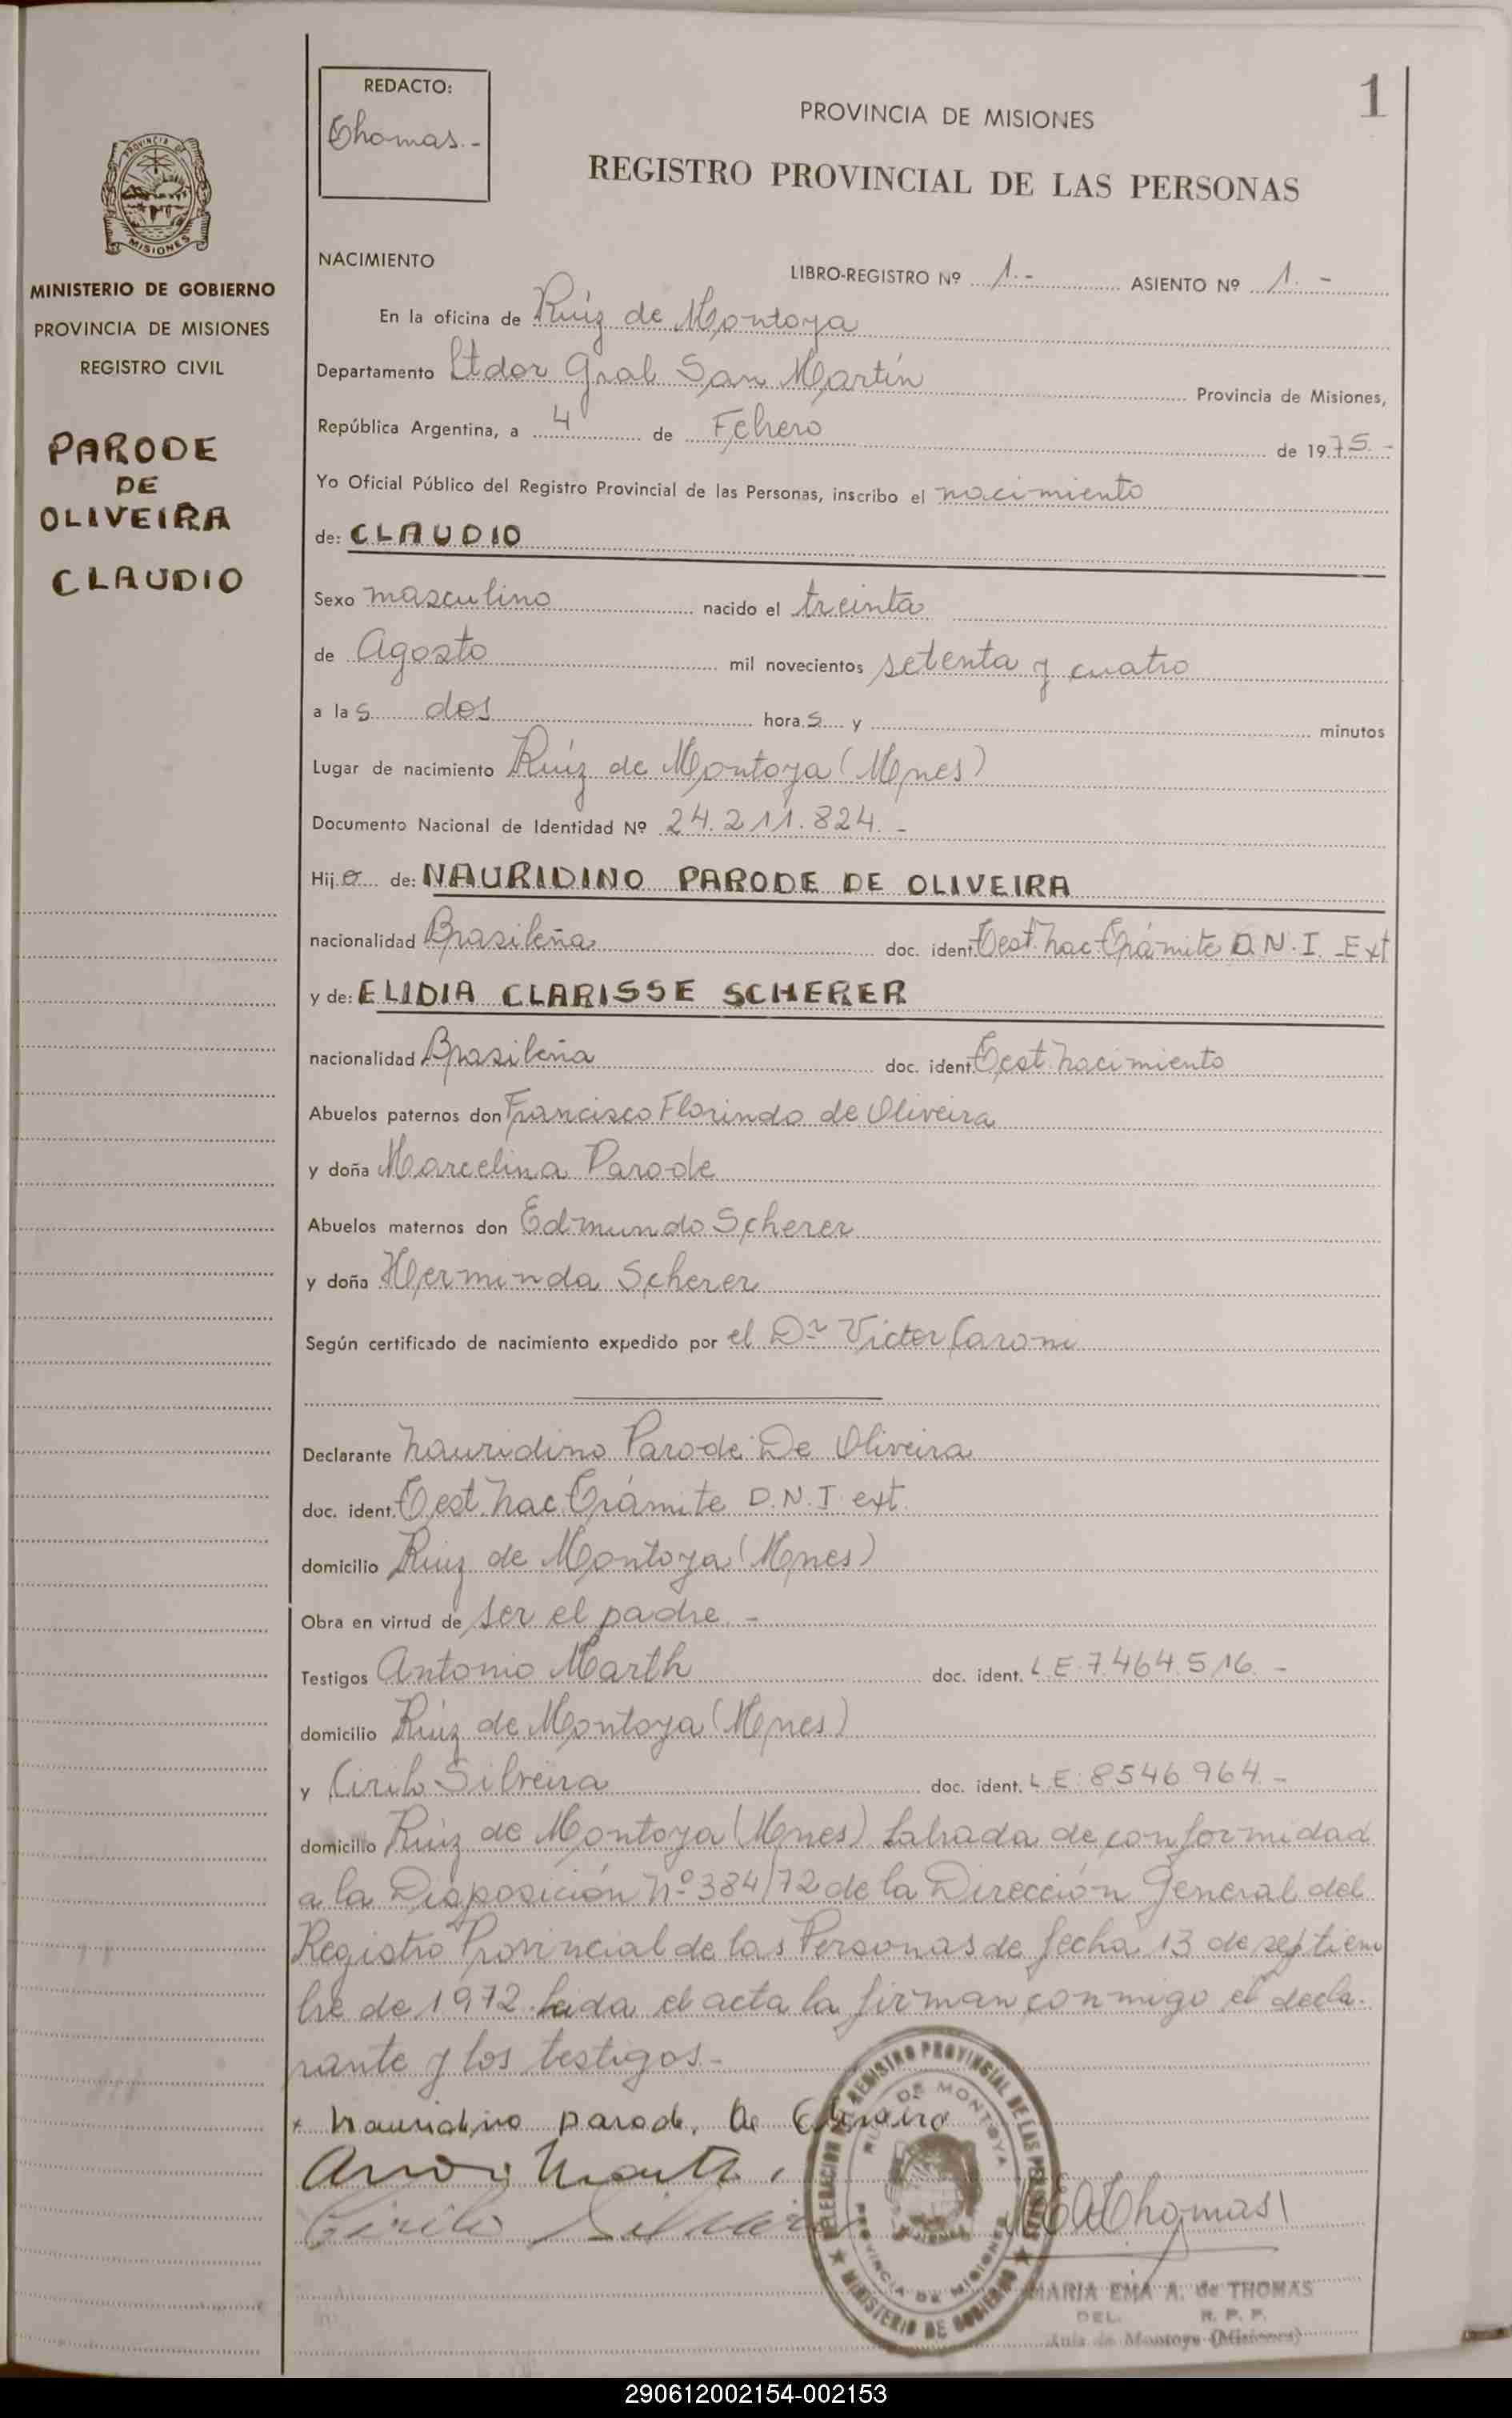 REDACTO:
Thomas.-
1
PROVINCIA DE MISIONES
REGISTRO PROVINCIAL DE LAS PERSONAS
PROVINCIA DE
MISIONES
MINISTERIO DE GOBIERNO
PROVINCIA DE MISIONES
REGISTRO CIVIL
PARODE
DE
OLIVEIRA
CLAUDIO
NACIMIENTO
LIBRO-REGISTRO Nº 1.- ASIENTO Nº 1.-
En la oficina de Ruíz de Montoya
Departamento Ltdor Gral San Martín Provincia de Misiones,
República Argentina, a 4 de Febrero de 1975.-
Yo Oficial Público del Registro Provincial de las Personas, inscribo el nacimiento
de: CLAUDIO
Sexo masculino nacido el treinta
de Agosto mil novecientos setenta y cuatro
a las dos horas y minutos
Lugar de nacimiento Ruíz de Montoya (Mnes)
Documento Nacional de Identidad Nº 24.211.824.-
Hijo de: NAURIDINO PARODE DE OLIVEIRA
nacionalidad Brasileña doc. ident. Test. nac. Trámite D.N.I. Ext
y de: ELIDIA CLARISSE SCHERER
nacionalidad Brasileña doc. ident. Test. nacimiento
Abuelos paternos don Francisco Florindo de Oliveira
y doña Marcelina Parode
Abuelos maternos don Edmundo Scherer
y doña Herminda Scherer
Según certificado de nacimiento expedido por el Dr Victor Caroni
Declarante Nauridino Parode De Oliveira
doc. ident. Test. nac. Trámite D.N.I. ext.
domicilio Ruiz de Montoya (Mnes)
Obra en virtud de ser el padre.-
Testigos Antonio Marth doc. ident. L.E. 7.464.516.-
domicilio Ruíz de Montoya (Mnes)
y Cirilo Silveira doc. ident. L.E. 8546964.-
domicilio Ruíz de Montoya (Mnes) Labrada de conformidad
a la Disposición Nº 384/72 de la Dirección General del
Registro Provincial de las Personas de fecha 13 de septiem
bre de 1972. Leida el acta la firman conmigo el decla-
rante y los testigos.-
x Nauridino parode De Oliveira
Cirilo Silveira
DELEGACION DEL REGISTRO PROVINCIAL DE LAS PERSONAS
RUIZ DE MONTOYA
PROVINCIA DE MISIONES
MINISTERIO DE GOBIERNO
MEAThomas
MARIA EMA A. de THOMAS
DEL. R. P. P.
Ruiz de Montoya (Misiones)
290612002154-002153